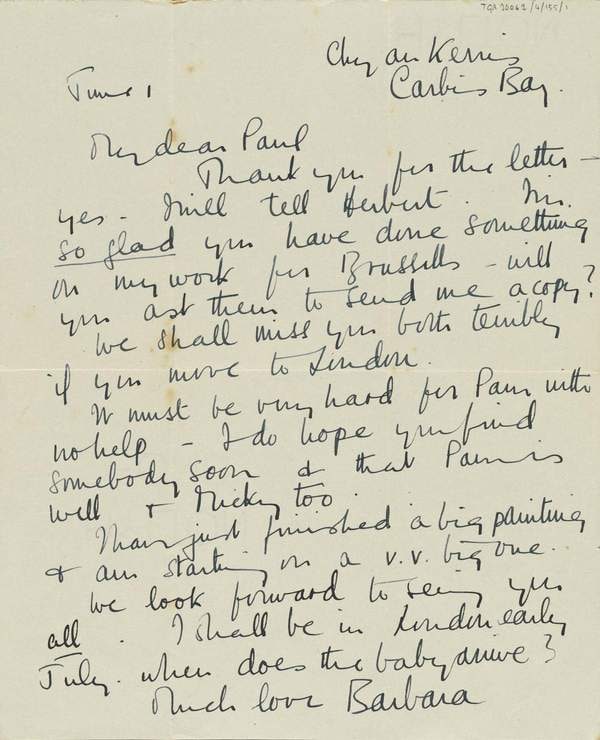 TGA 20062/4/155/1
Chy an Kerris
Carbis Bay.
June 1
My dear Paul
Thank you for the letter –
yes – I will tell Herbert. I'm
so glad you have done something
on my work for Brussells – will
you ask them to send me a copy?
We shall miss you both terribly
if you move to London.
It must be very hard for Pam with
no help – I do hope you find
somebody soon & that Pam is
well & Micky too.
I have just finished a big painting
& am starting on a v.v. big one.
We look forward to seeing you
all. I shall be in London early
July. when does the baby arrive?
Much love Barbara